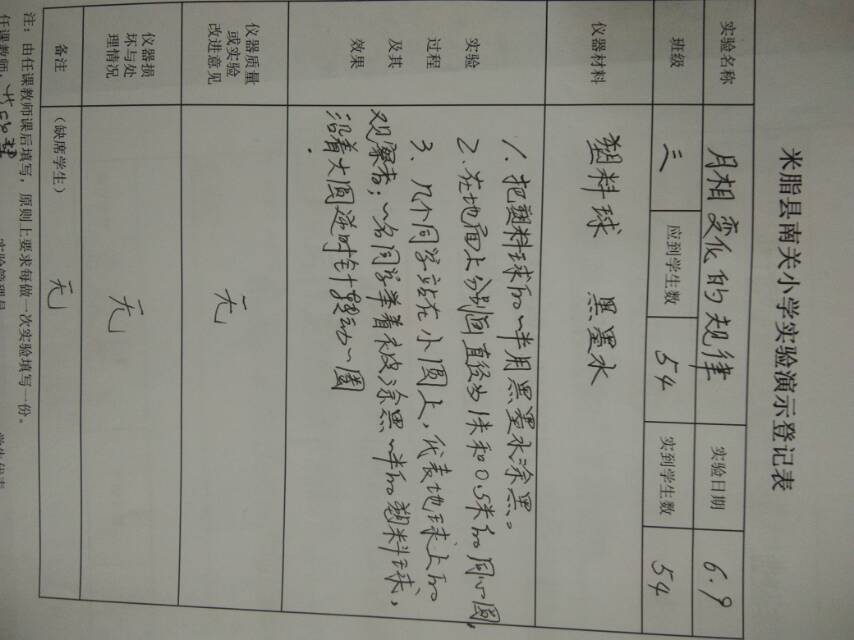 米脂县南关小学实验演示登记表
实验名称 月相变化的规律 实验日期 6.9
班级 三 应到学生数 54 实到学生数 54
仪器材料 塑料球 黑墨水
实验
过程
及其
效果
1、把塑料球的一半用黑墨水涂黑。
2、在地面上分别画直径为1米和0.5米的同心圆,
3、几个同学站在小圆上,代表地球上的
观察者;一名同学举着被涂黑一半的塑料球,
沿着大圆逆时针转动一圈
仪器质量
或实验
改进意见
无
仪器损
坏与处
理情况
无
备注 (缺席学生) 无
注:由任课教师课后填写,原则上要求每做一次实验填写一份。
任课教师
实验管理员